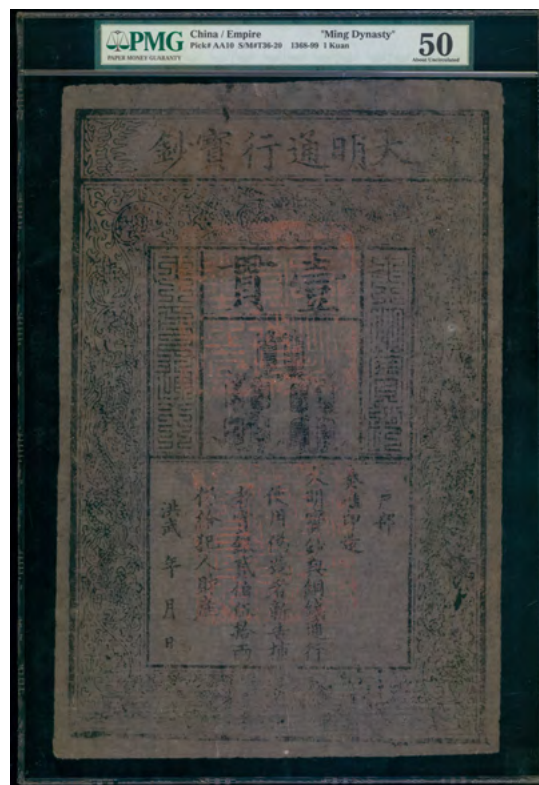 PMG
PAPER MONEY GUARANTY
China / Empire "Ming Dynasty"
Pick# AA10 S/M#T36-20 1368-99 1 Kuan
50
About Uncirculated
大明通行寶鈔
壹貫
戶部
奏准印造
大明寶鈔與銅錢通行
使用偽造者斬告捕
者賞銀貳伯伍拾兩
仍給犯人財產
洪武 年 月 日